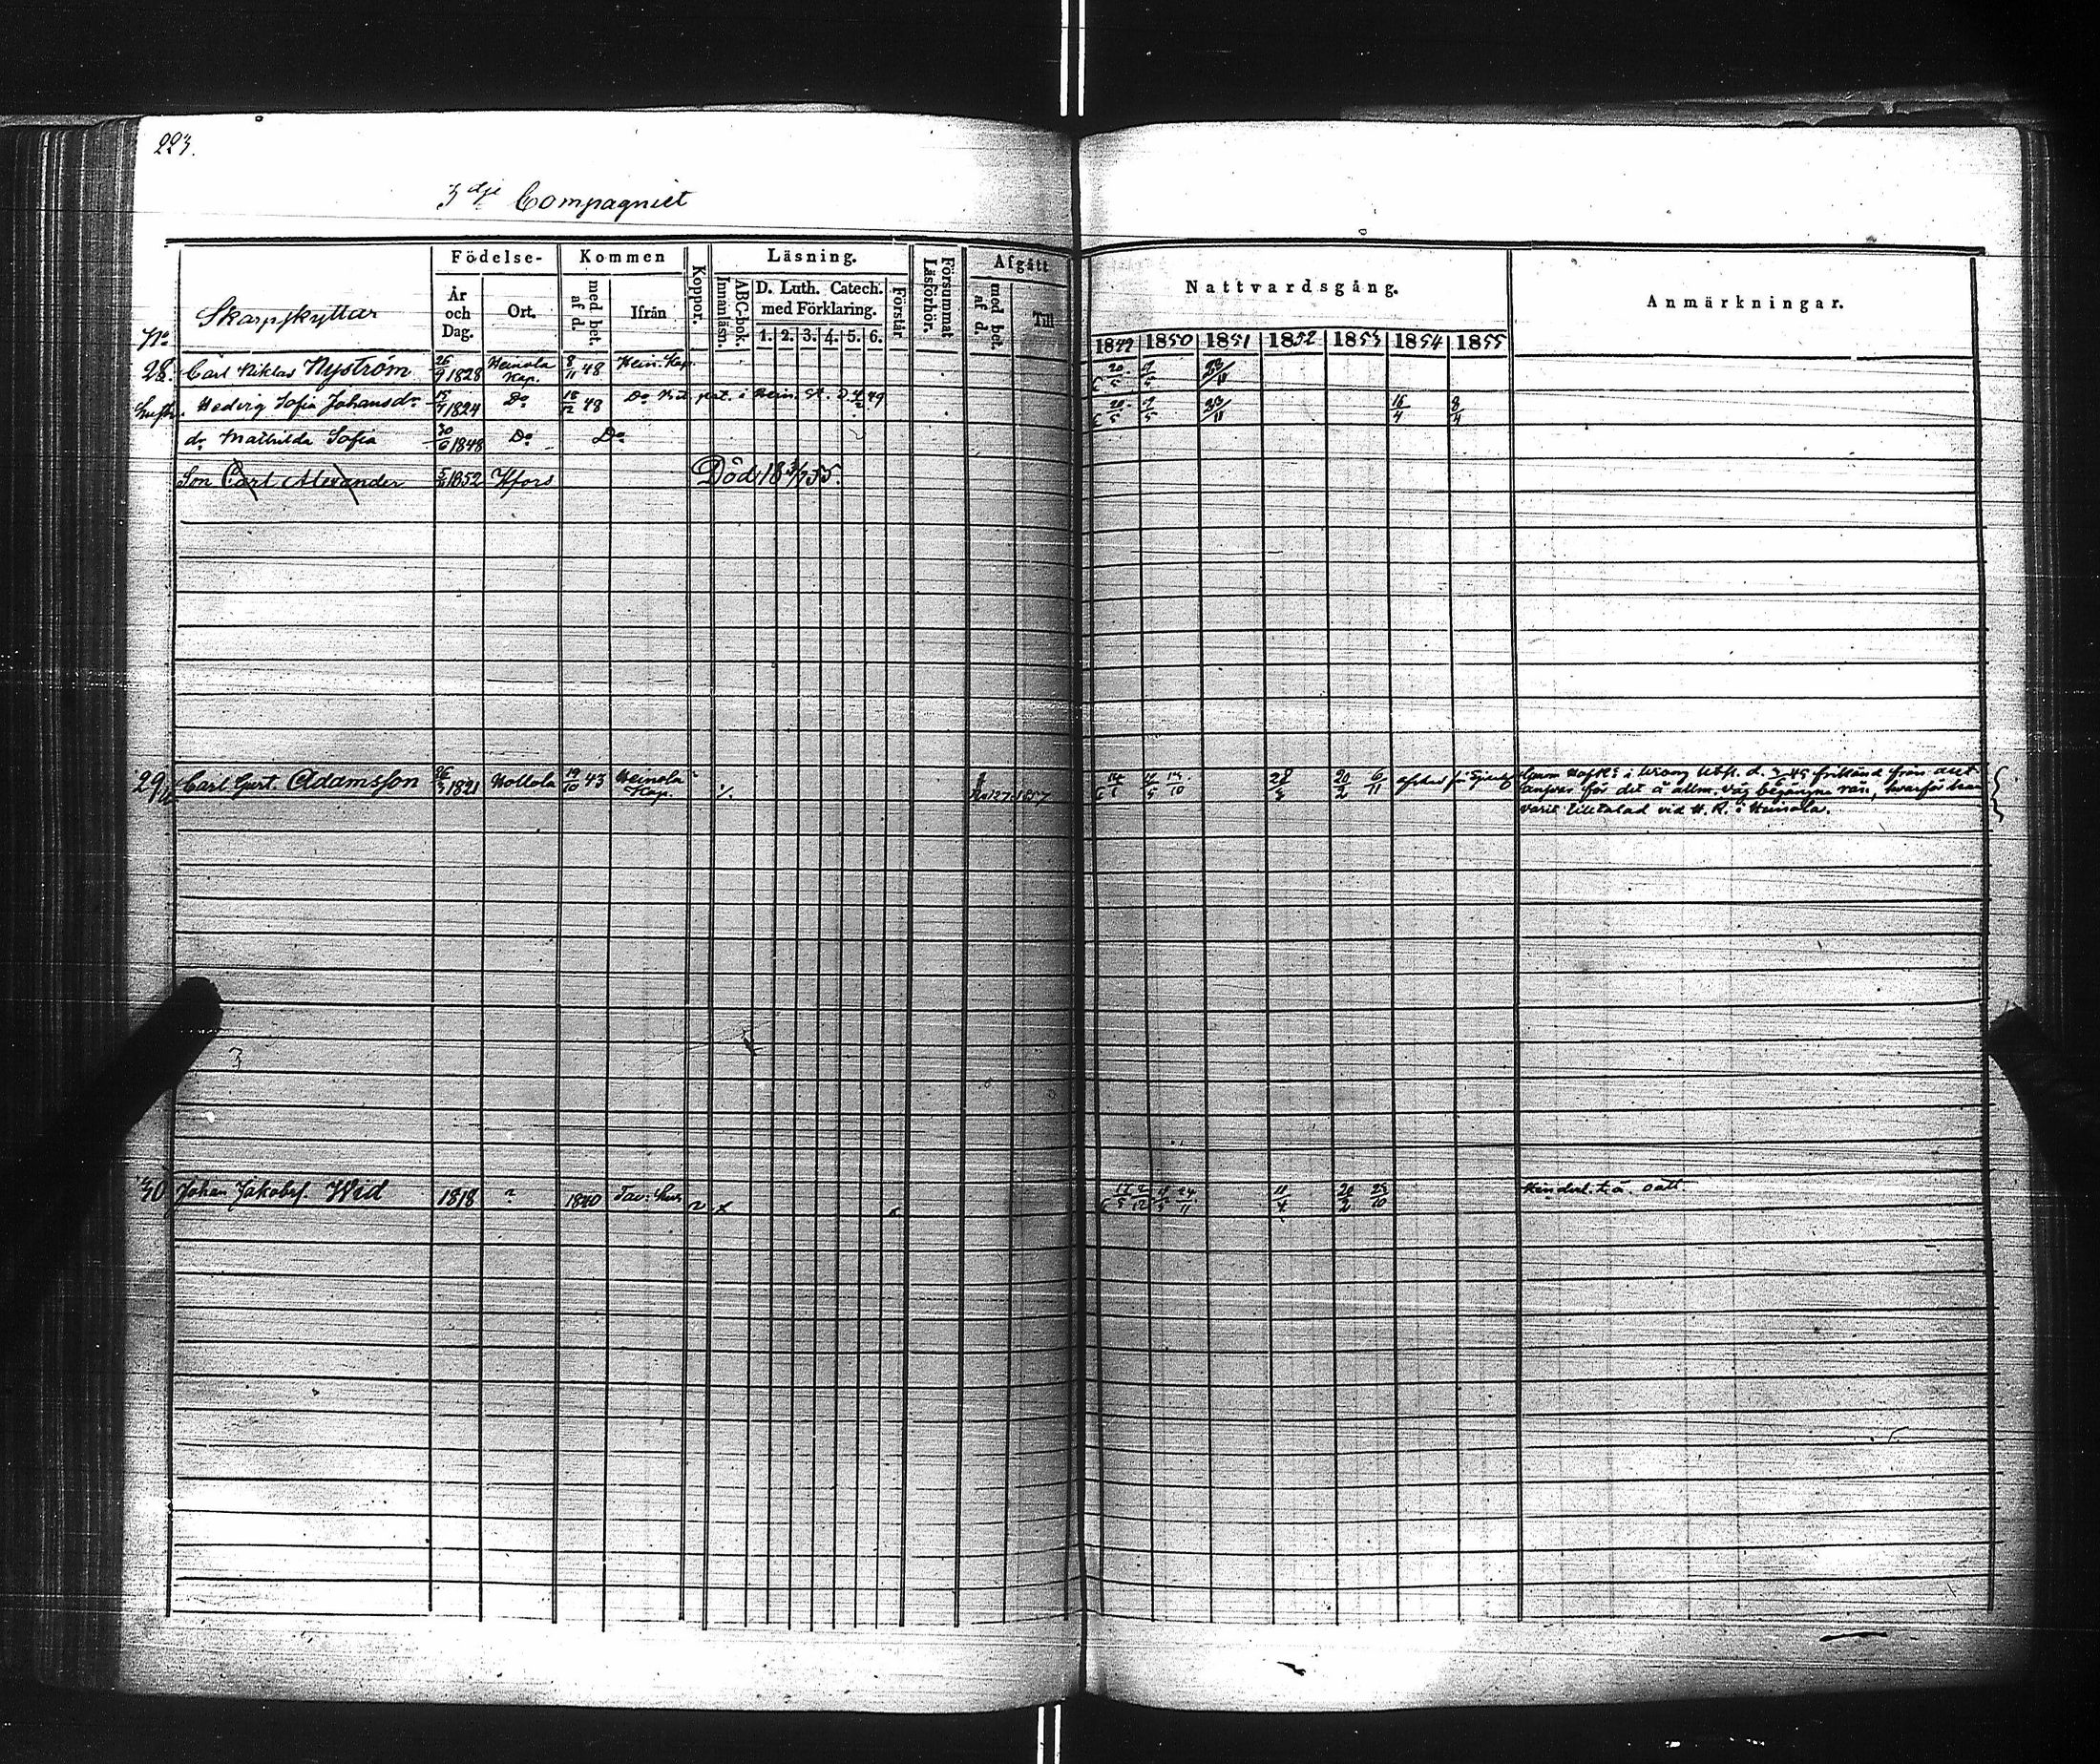 223.
3dje Compagniet
No
Skarpskyttar
Födelse-
År och Dag.
Ort.
Kommen
med bet. af d.
Ifrån
Koppor.
Läsning.
Innanläsn.
ABC-bok.
D. Luth. Catech. med Förklaring.
1. 2. 3. 4. 5. 6.
Förstår
Försummat Läsförhör.
Afgått
med bet. af d.
Till
Nattvardsgång.
1849 1850 1851 1852 1853 1854 1855
Anmärkningar.
28. Carl Niklas Nyström 26/9 1828 Heinola Kap. 8/11 48 Hein. Kap. 20/5 9/5 23/11
Hedvig Sofia Johansdr 1824 Do 16/12 48 Do i Hein. 49 20/5 9/5 23/11 16/4 8/4
dr Mathilda Sofia 30/6 1848 Do Do
Son Carl Alexander 1852 Hfors Död 18 55.
29 Carl Gust. Adamsson 26/3 1821 Hollola 19/10 43 Heinola Kap. 127 1857 28/3 20/2 6/11 i d. 49 frikänd från allt
ansvar för det å allm. väg begångna rån, hvarför han
varit tilltalad vid H. R. i Heinola.
30 Johan Jakobss. Wid 1818 ? 1840 11/4 20/2 29/10